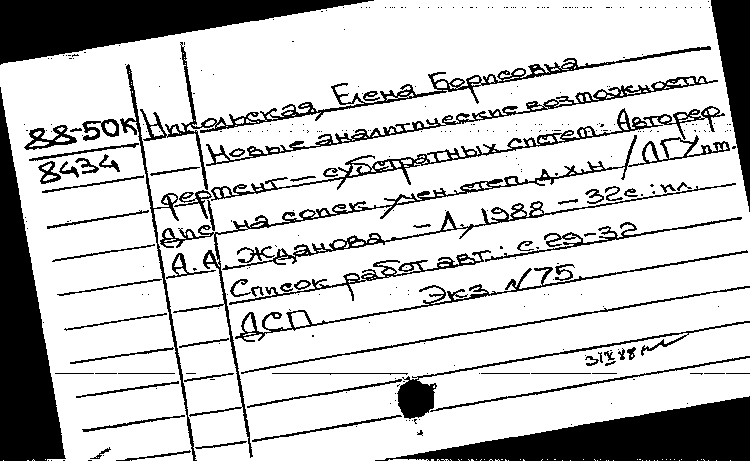 88-50К
8434
Никольская, Елена Борисовна.
Новые аналитические возможности
фермент — субстратных систем: Автореф.
дис. на соиск. учен. степ. д.х.н. / ЛГУ им.
А.А. Жданова. – Л., 1988 – 32с.: ил.
Список работ авт.: с. 29-32
ДСП. Экз. N 75.